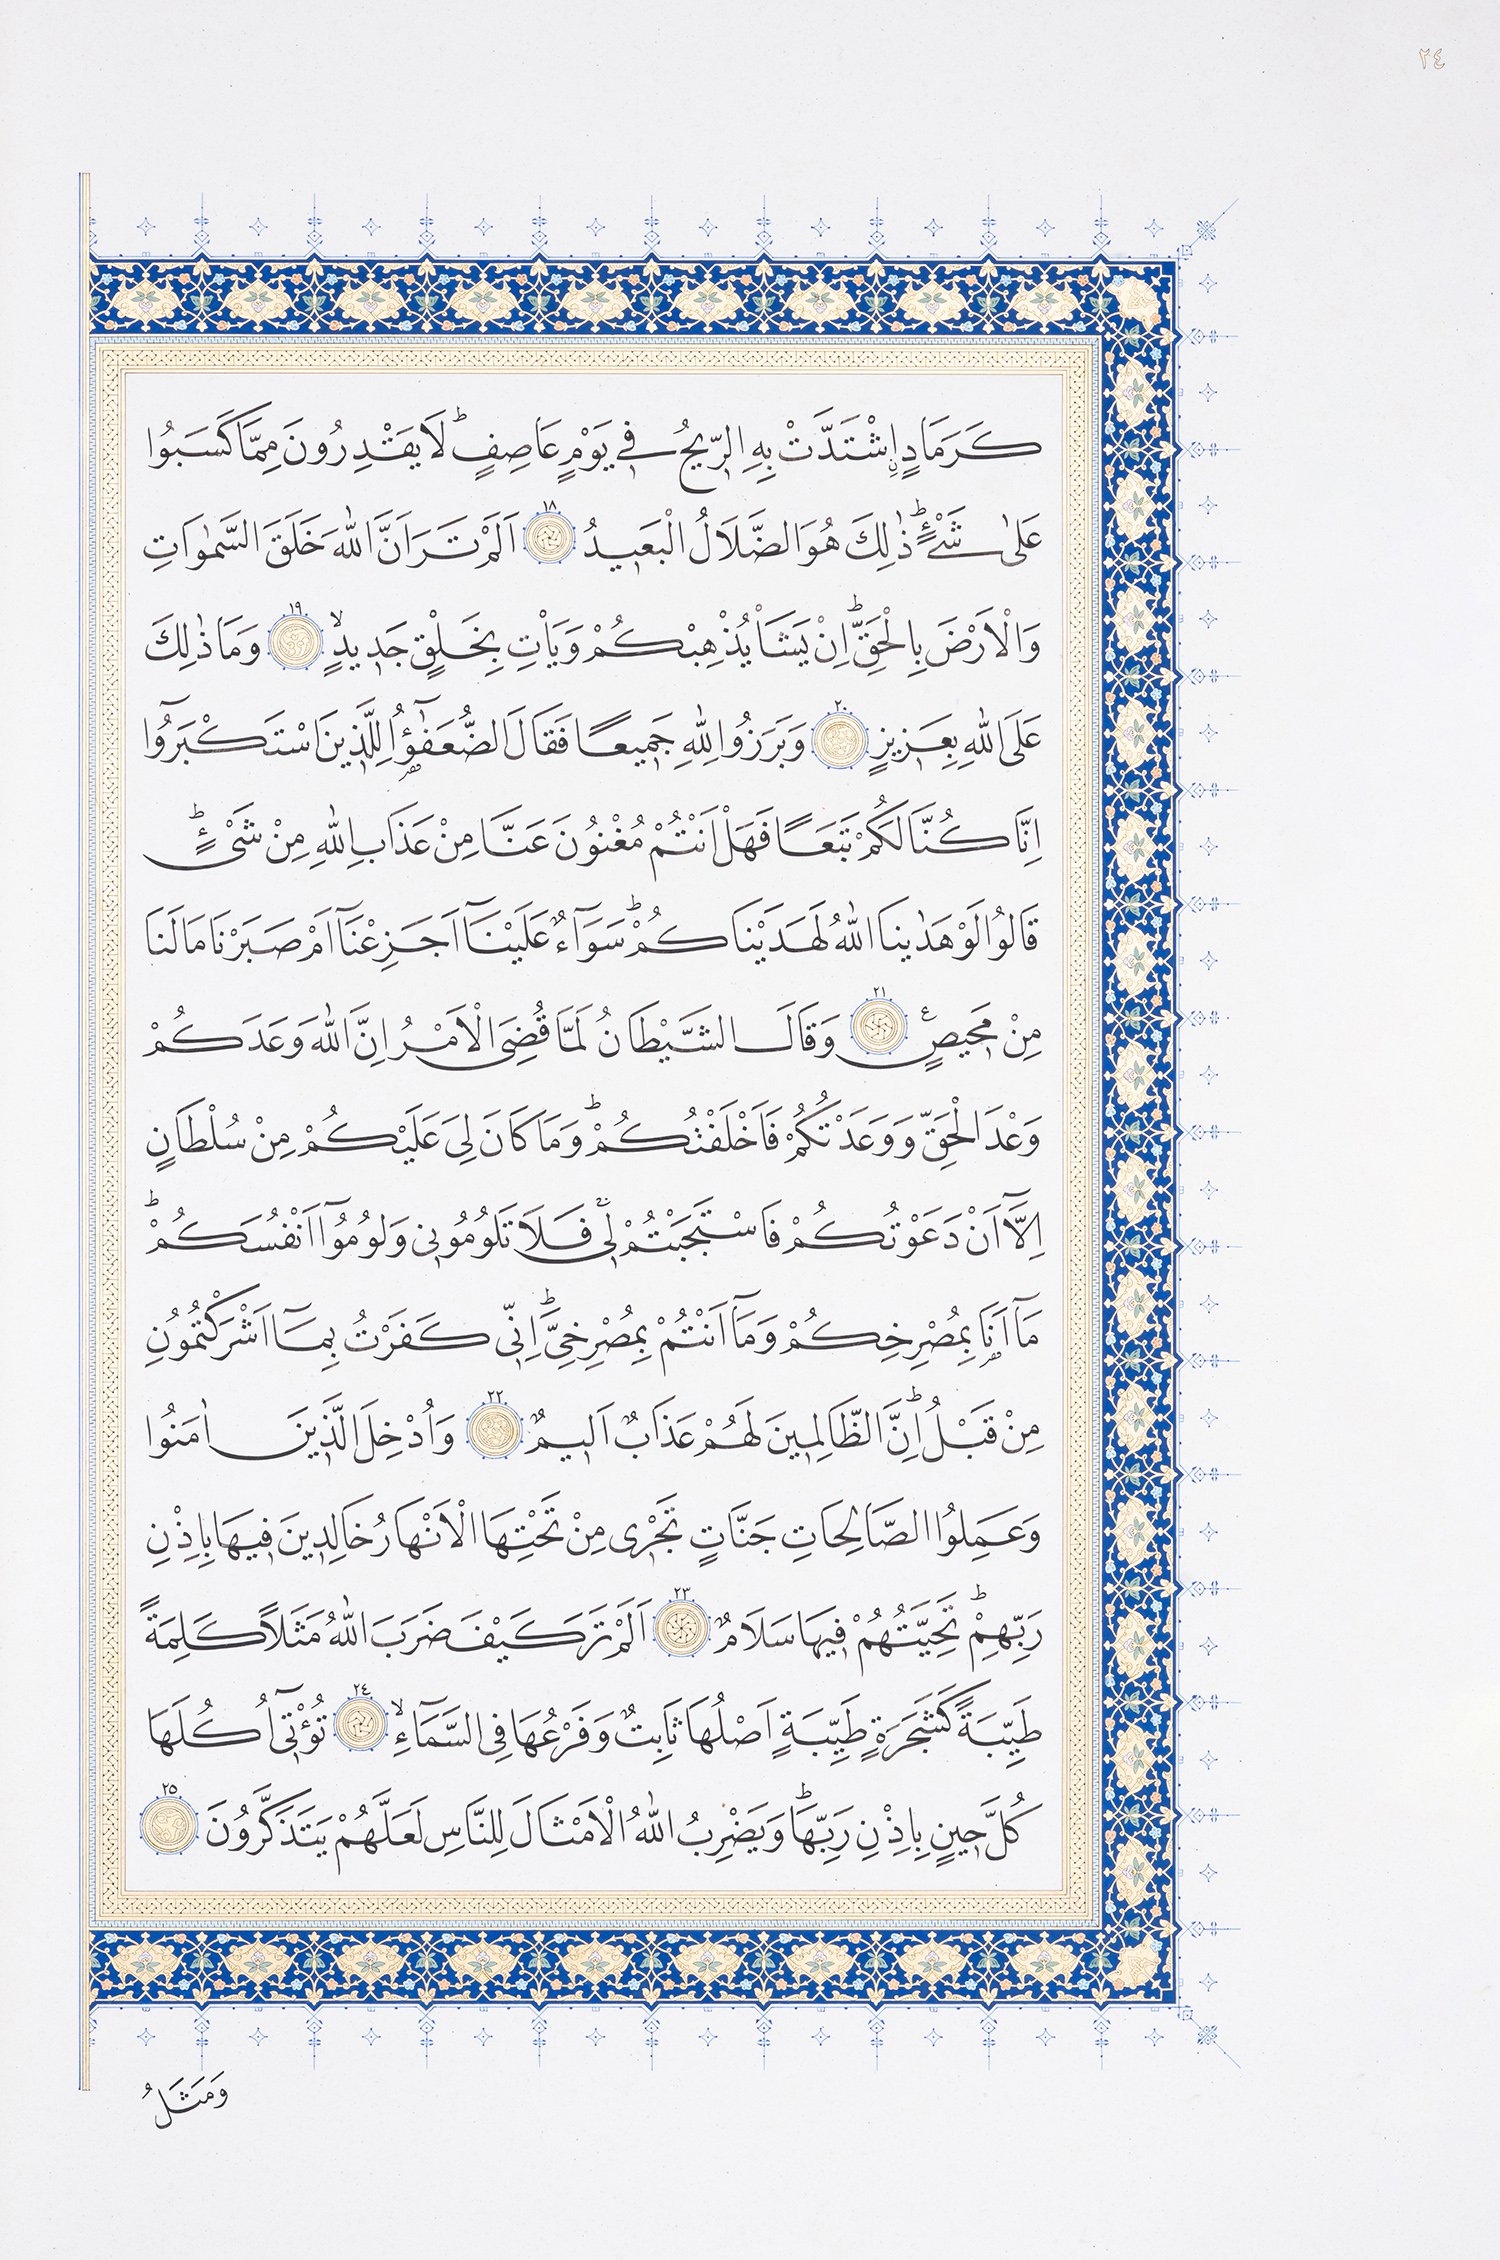 ٢٤
كَرَمَادٍۨ اشْتَدَّتْ بِهِ الرّ۪يحُ ف۪ي يَوْمٍ عَاصِفٍۜ لَا يَقْدِرُونَ مِمَّا كَسَبُوا
عَلٰى شَيْءٍۜ ذٰلِكَ هُوَ الضَّلَالُ الْبَع۪يدُ ١٨ اَلَمْ تَرَ اَنَّ اللّٰهَ خَلَقَ السَّمٰوَاتِ
وَالْاَرْضَ بِالْحَقِّۜ اِنْ يَشَأْ يُذْهِبْكُمْ وَيَأْتِ بِخَلْقٍ جَد۪يدٍۙ ١٩ وَمَا ذٰلِكَ
عَلَى اللّٰهِ بِعَز۪يزٍ ٢٠ وَبَرَزُوا لِلّٰهِ جَم۪يعًا فَقَالَ الضُّعَفٰٓؤُ۬ا لِلَّذ۪ينَ اسْتَكْبَرُٓوا
اِنَّا كُنَّا لَكُمْ تَبَعًا فَهَلْ اَنْتُمْ مُغْنُونَ عَنَّا مِنْ عَذَابِ اللّٰهِ مِنْ شَيْءٍۜ
قَالُوا لَوْ هَدٰينَا اللّٰهُ لَهَدَيْنَاكُمْۜ سَوَٓاءٌ عَلَيْنَٓا اَجَزِعْنَٓا اَمْ صَبَرْنَا مَا لَنَا
مِنْ مَح۪يصٍ۟ ٢١ وَقَالَ الشَّيْطَانُ لَمَّا قُضِيَ الْاَمْرُ اِنَّ اللّٰهَ وَعَدَكُمْ
وَعْدَ الْحَقِّ وَوَعَدْتُكُمْ فَاَخْلَفْتُكُمْۜ وَمَا كَانَ لِيَ عَلَيْكُمْ مِنْ سُلْطَانٍ
اِلَّٓا اَنْ دَعَوْتُكُمْ فَاسْتَجَبْتُمْ ل۪يۚ فَلَا تَلُومُون۪ي وَلُومُٓوا اَنْفُسَكُمْۜ
مَٓا اَنَا۬ بِمُصْرِخِكُمْ وَمَٓا اَنْتُمْ بِمُصْرِخِيَّۜ اِنّ۪ي كَفَرْتُ بِمَٓا اَشْرَكْتُمُونِ
مِنْ قَبْلُۜ اِنَّ الظَّالِم۪ينَ لَهُمْ عَذَابٌ اَل۪يمٌ ٢٢ وَاُدْخِلَ الَّذ۪ينَ اٰمَنُوا
وَعَمِلُوا الصَّالِحَاتِ جَنَّاتٍ تَجْر۪ي مِنْ تَحْتِهَا الْاَنْهَارُ خَالِد۪ينَ ف۪يهَا بِاِذْنِ
رَبِّهِمْۜ تَحِيَّتُهُمْ ف۪يهَا سَلَامٌ ٢٣ اَلَمْ تَرَ كَيْفَ ضَرَبَ اللّٰهُ مَثَلًا كَلِمَةً
طَيِّبَةً كَشَجَرَةٍ طَيِّبَةٍ اَصْلُهَا ثَابِتٌ وَفَرْعُهَا فِي السَّمَٓاءِۙ ٢٤ تُؤْت۪ٓي اُكُلَهَا
كُلَّ ح۪ينٍ بِاِذْنِ رَبِّهَاۜ وَيَضْرِبُ اللّٰهُ الْاَمْثَالَ لِلنَّاسِ لَعَلَّهُمْ يَتَذَكَّرُونَ ٢٥
وَمَثَلُ